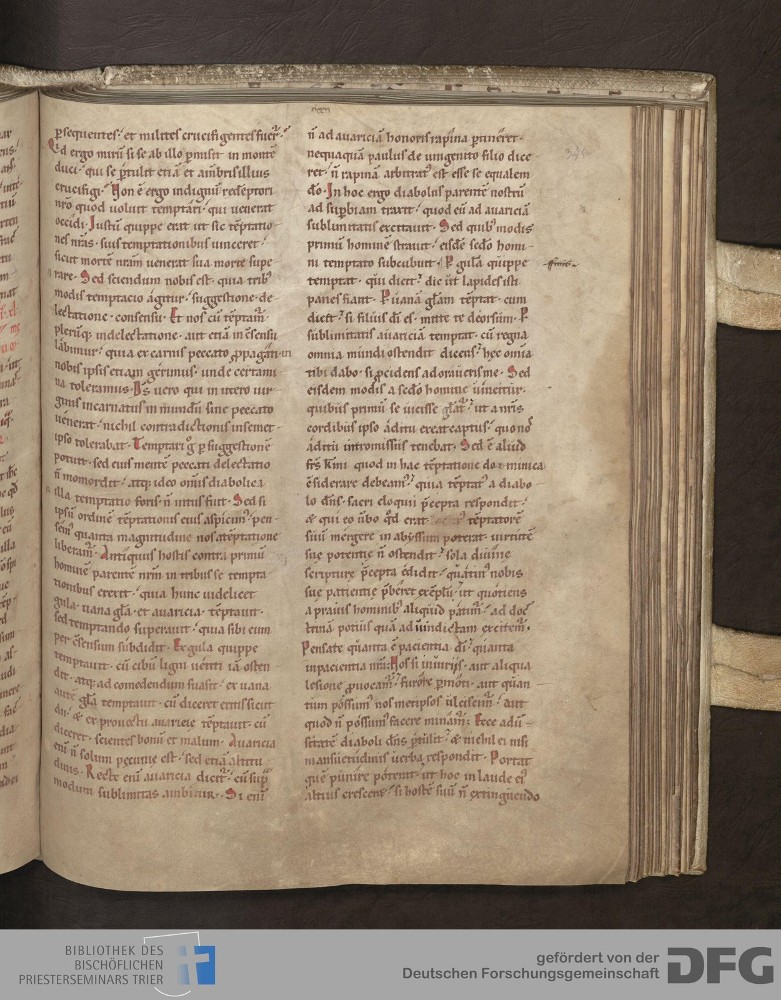 p̄sequentes. et milites crucifigentes fuer̄.
Qd ergo mirū si se ab illo p̄misit in monte
duci. qui se p̄tulit etiā et a mēbris illius
crucifigi. Non ē ergo indignū redēptori
nr̄o quod uoluit temptari. qui uenerat
occidi. Iustū quippe erat ut sic tēptatio
nes nr̄as. suis temptationibus uinceret.
sicut mortē nr̄am uenerat sua morte supe
rare. Sed sciendum nobis est. quia trib;
modis temptacio agitur. suggestione. de
lectatione. consensu. Et nos cū tēptam̄.
plerūq; in delectatione. aut etiā in c̄sensū
labimur. quia ex carnis peccato ꝓpagati. in
nobis ipsis etiam gerimus. unde certami
na toleramus. D̄s uero qui in utero uir
ginis incarnatus in mundū sine peccato
uenerat. nichil contradictionis in semet
ipso tolerabat. Temptari g̊ p suggestionē
potuit. sed eius mentē peccati delectatio
n̄ momordit. atq; ideo om̄is diabolica
illa temptatio foris. n̄ intus fuit. Sed si
ipsū ordinē tēptationis eius aspicim. pen
sem quanta magnitudine nos a tēptatione
liberam̄. Antiquus hostis contra primū
hominē parentē nr̄m in tribus se tempta
tionibus erexit. quia hunc uidelicet
gula. uana gl̄a. et auaricia. tēptauit.
sed temptando superauit. quia sibi eum
per c̄sensum subdidit. Ex gula quippe
temptauit. cū cibū ligni uetiti ei osten
dit. atq; ad comedendum suasit. ex uana
autē gl̄a temptauit. cū diceret eritis sicut
dii. & ex prouectu auaricie tēptauit. cū
diceret. scientes bonū et malum. Auaricia
enī n̄ solum pecunie est. sed etiā altitu
dinis. Recte enī auaricia dicit̄. cū sup̄
modum sublimitas ambitur. Si enī
n̄ ad auariciā honoris rapina p̄tineret.
nequaquā paulus de unigenito filio dice
ret. n̄ rapinā arbitrat; est esse se equalem
dō. In hoc ergo diabolus parentē nostrū
ad sup̄biam traxit. quod eū ad auariciā
sublimitatis excitauit. Sed quib; modis
primū hominē strauit. eisdē sc̄do homi
ni temptato subcubuit. P gulā quippe
temptat. qūi dicit. dic ut lapides isti
panes fiant. P uanā gl̄am tēptat. cum
dicit. si filius dī es. mitte te deorsum. P
sublimitatis auariciā temptat. cū regna
omnia mundi ostendit dicens. hęc om̄ia
tibi dabo. si ꝓcidens adoraueris me. Sed
eisdem modis a sc̄do homine uincitur.
quibus primū se uicisse gl̄at. ut a nr̄is
cordibus ipso aditu exeat captus. quo nos
aditū intromissus tenebat. Sed ē aliud
fr̄s km̄i quod in hac tēptatione dominica
c̄siderare debeam. quia tēptat; a diabo
lo dn̄s. sacri eloquii p̄cepta respondit.
& qui eo ūbo qd̄ erat tēptatorē
suū mergere in abyssum poterat. uirtutē
suę potentię n̄ ostendit. sola diuinę
scripturę p̄cepta edidit. quatin; nobis
suę patientię p̄beret exēplū. ut quotiens
a prauis hominib; aliquid patim̄. ad doc
trinā potius quā ad uindictam excitem̄.
Pensate quanta ē pacientia dī. quanta
inpacientia nr̄a. Nos si iniuriis. aut aliqua
lesione ꝓuocam̄. furore p̄moti. aut quan
tum possum; nos metipsos ulciscim̄. aut
quod n̄ possum; facere minam̄. Ecce adū
sitatē diaboli dn̄s p̄tulit. & nichil ei nisi
mansuetudinis uerba respondit. Portat
quē punire poterit. ut hoc in laude ei;
altius crescerē. si hostē suū n̄ extinguendo
BIBLIOTHEK DES
BISCHÖFLICHEN
PRIESTERSEMINARS TRIER
gefördert von der
Deutschen Forschungsgemeinschaft
DFG